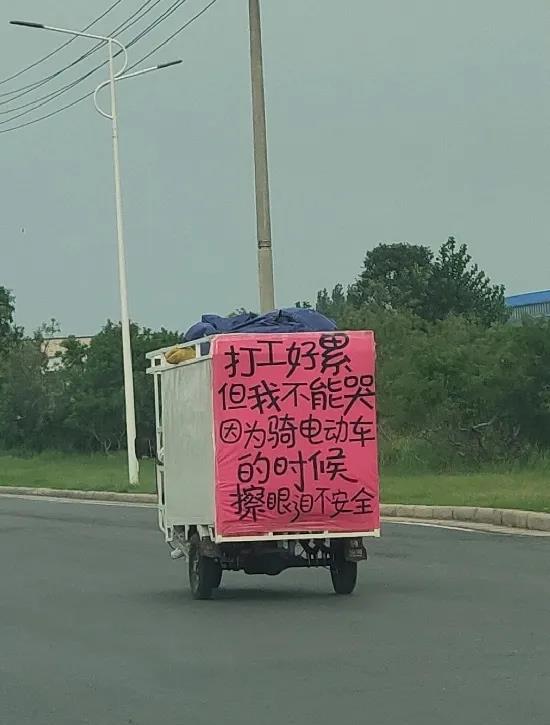 打工好累
但我不能哭
因为骑电动车
的时候
擦眼泪不安全